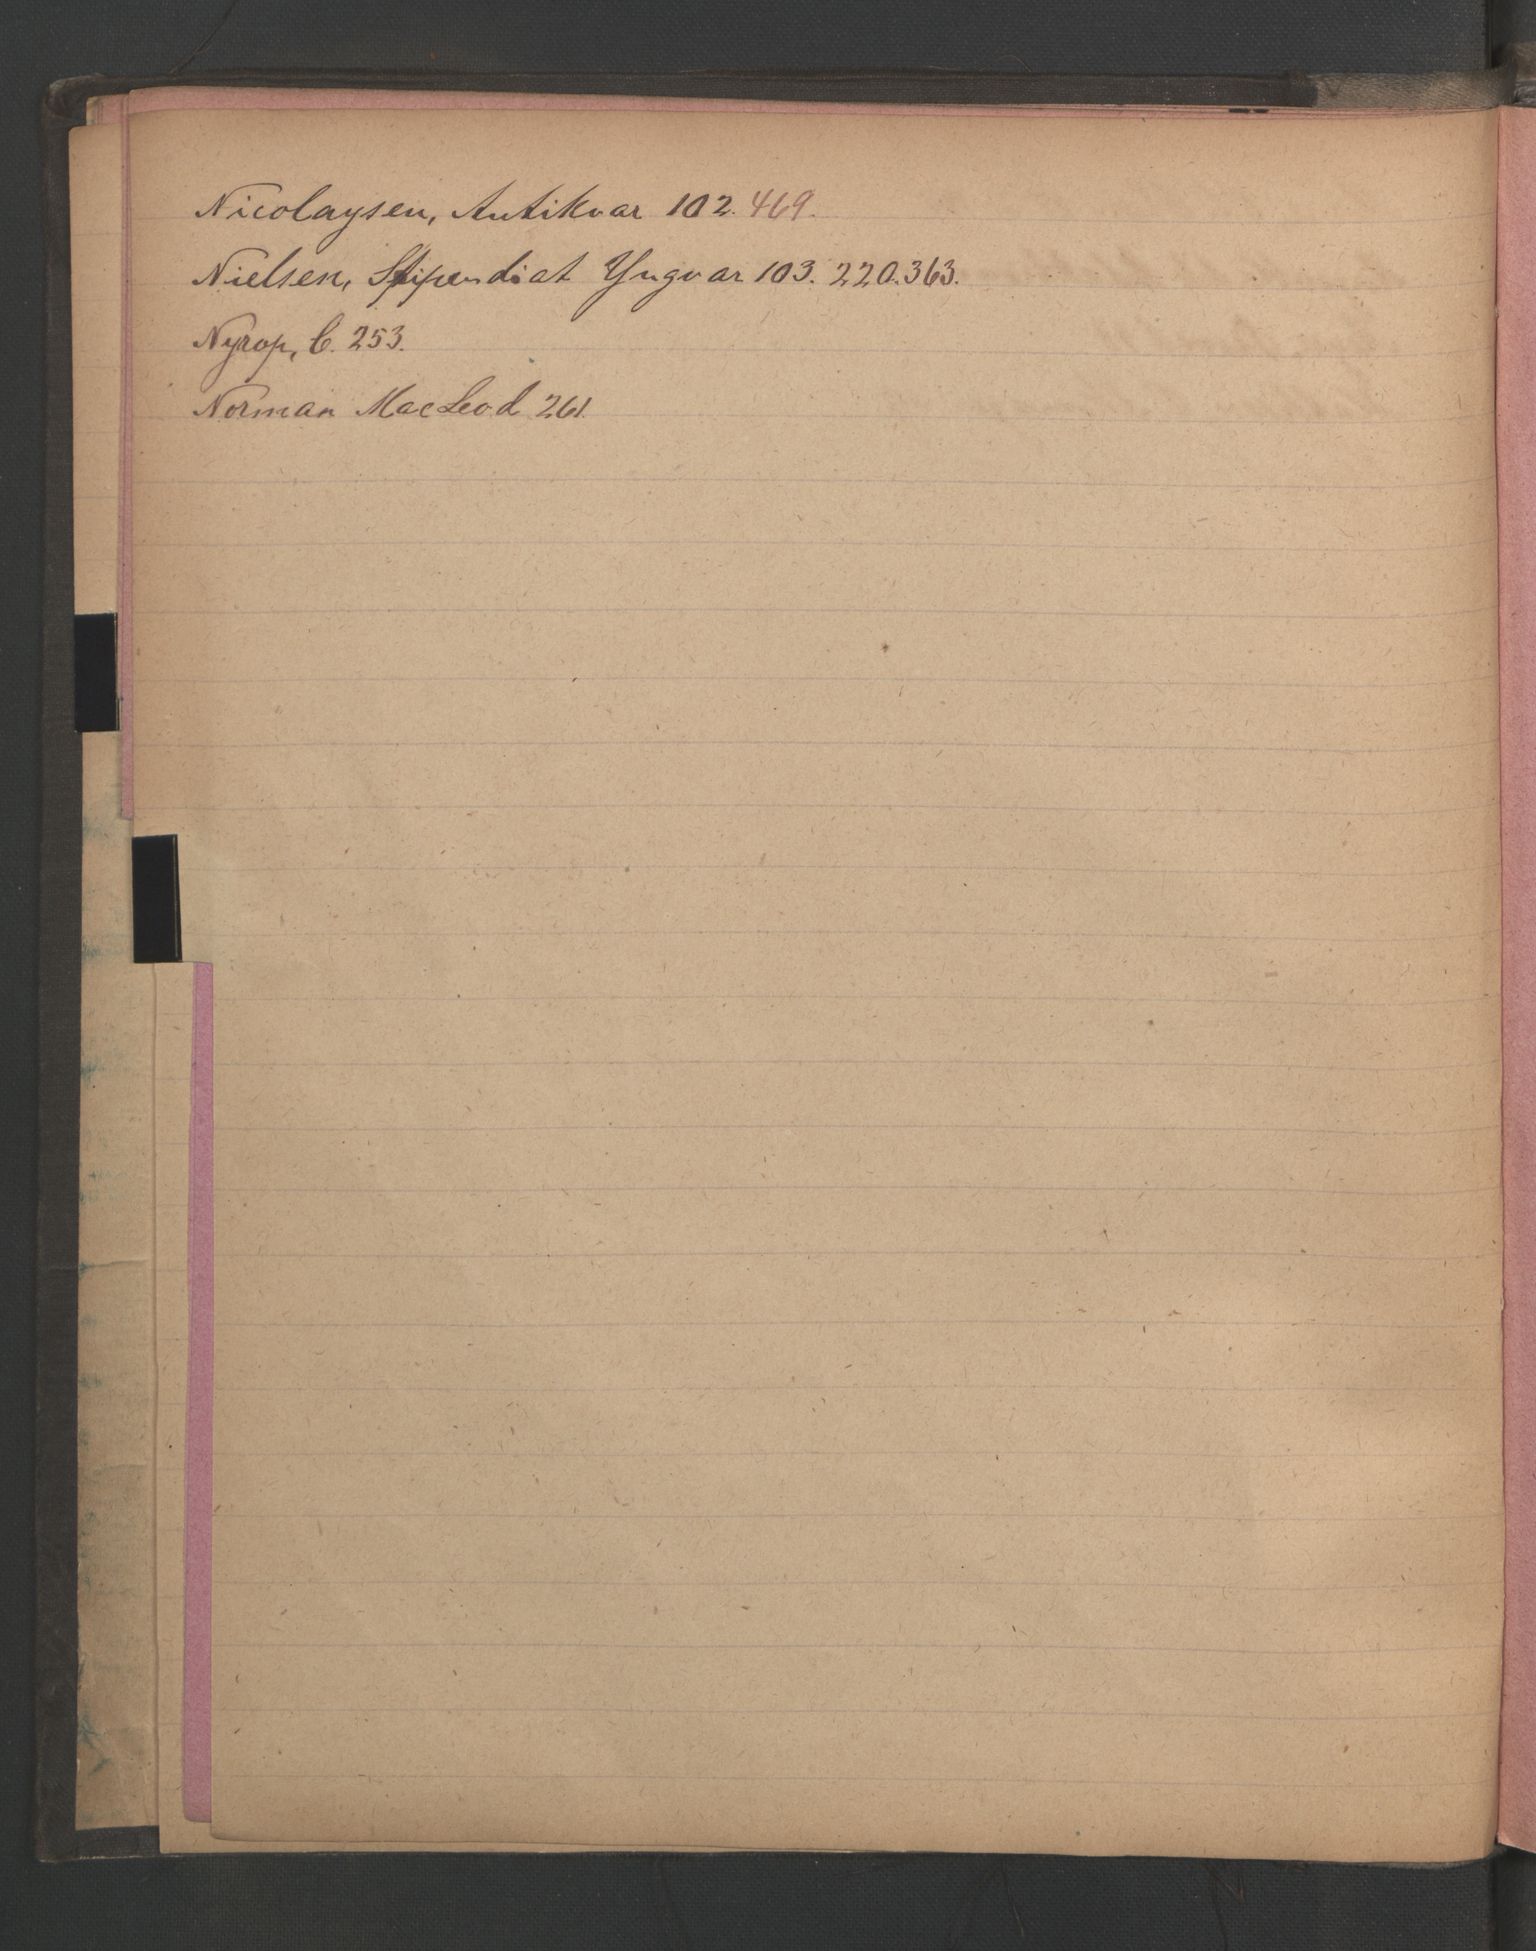 Nicolaysen, Antikvar 102. 469.
Nielsen, Stipendiat Yngvar 103. 220. 363.
Nyrop, C. 253.
Norman MacLeod 261.